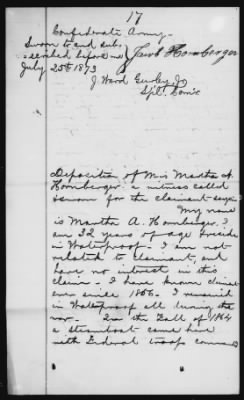 17
Confederate Army.
Sworn to and sub-
scribed before me Jacob Hornberger
July 25th 1873
J Ward Gurley Jr
Spl. Comr.
Deposition of Miss Martha A.
Hornberger. a witness called
& sworn for the claimant says
My name
is Martha A. Hornberger. I
am 32 years of age & reside
in Waterproof. I am not
related to claimant, and
have no interest in this
claim. I have known claimt
ever since 1856. I remained
in Waterproof all during the
war. In the Fall of 1864
a steamboat came here
with Federal troops